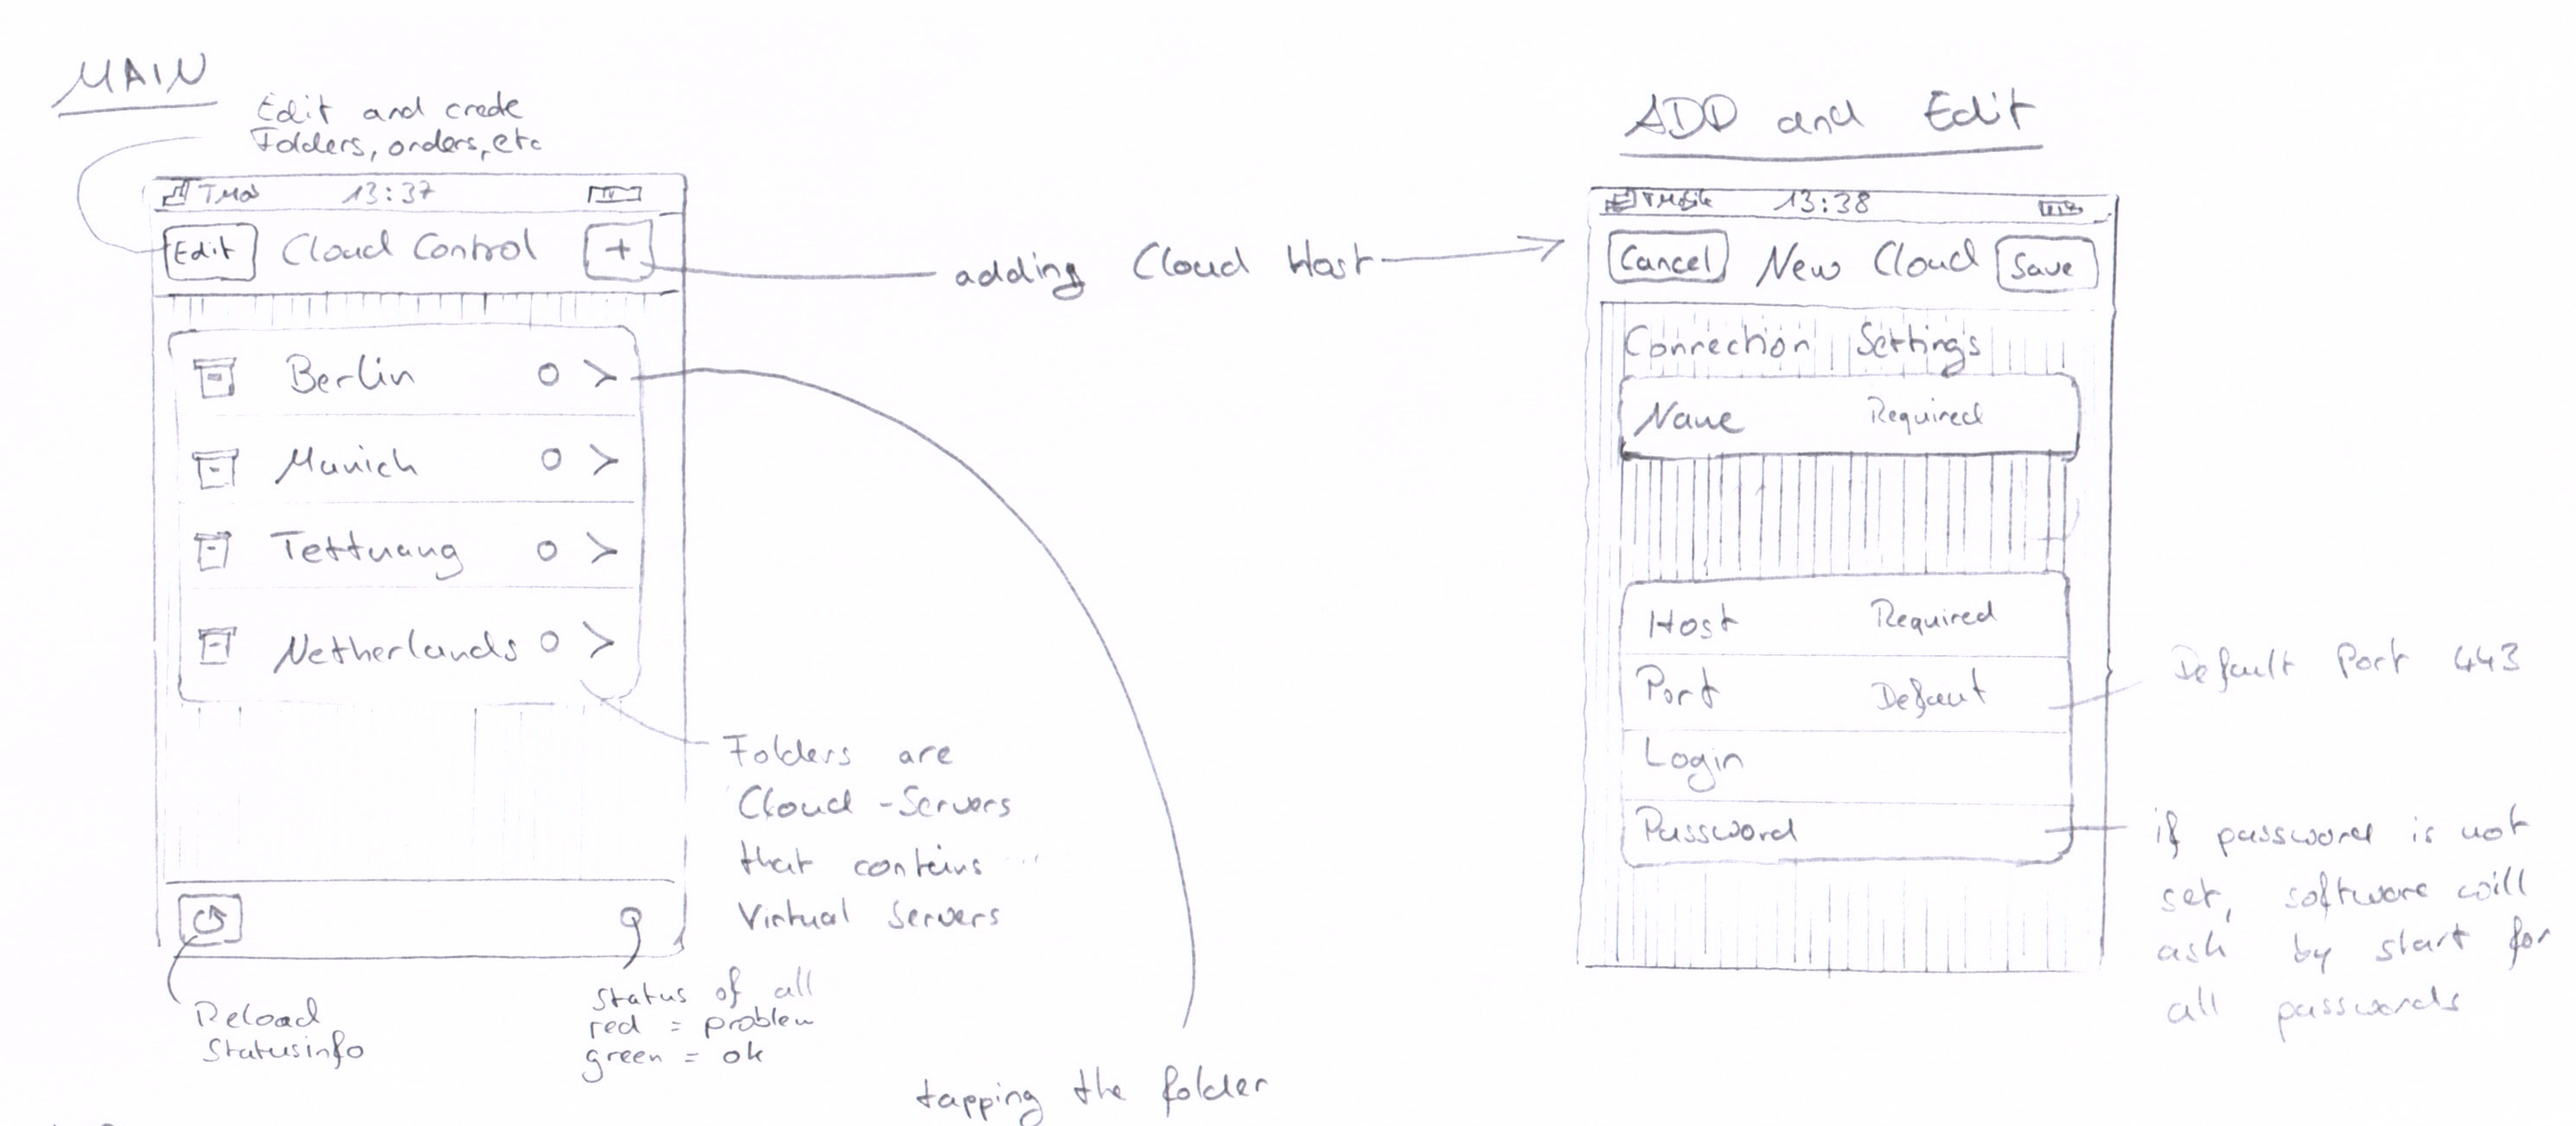 MAIN
Edit and create
Folders, orders, etc
TMob 13:37
Edit Cloud Control +
adding Cloud Host
Berlin
Munich
Tettnang
Netherlands
Folders are
Cloud-Servers
that contains
Virtual Servers
Reload
Statusinfo
Status of all
red = problem
green = ok
tapping the folder
ADD and Edit
TMobile 13:38
Cancel New Cloud Save
Connection Settings
Name Required
Host Required
Port Default
Login
Password
Default Port 443
if password is not
set, software will
ask by start for
all passwords